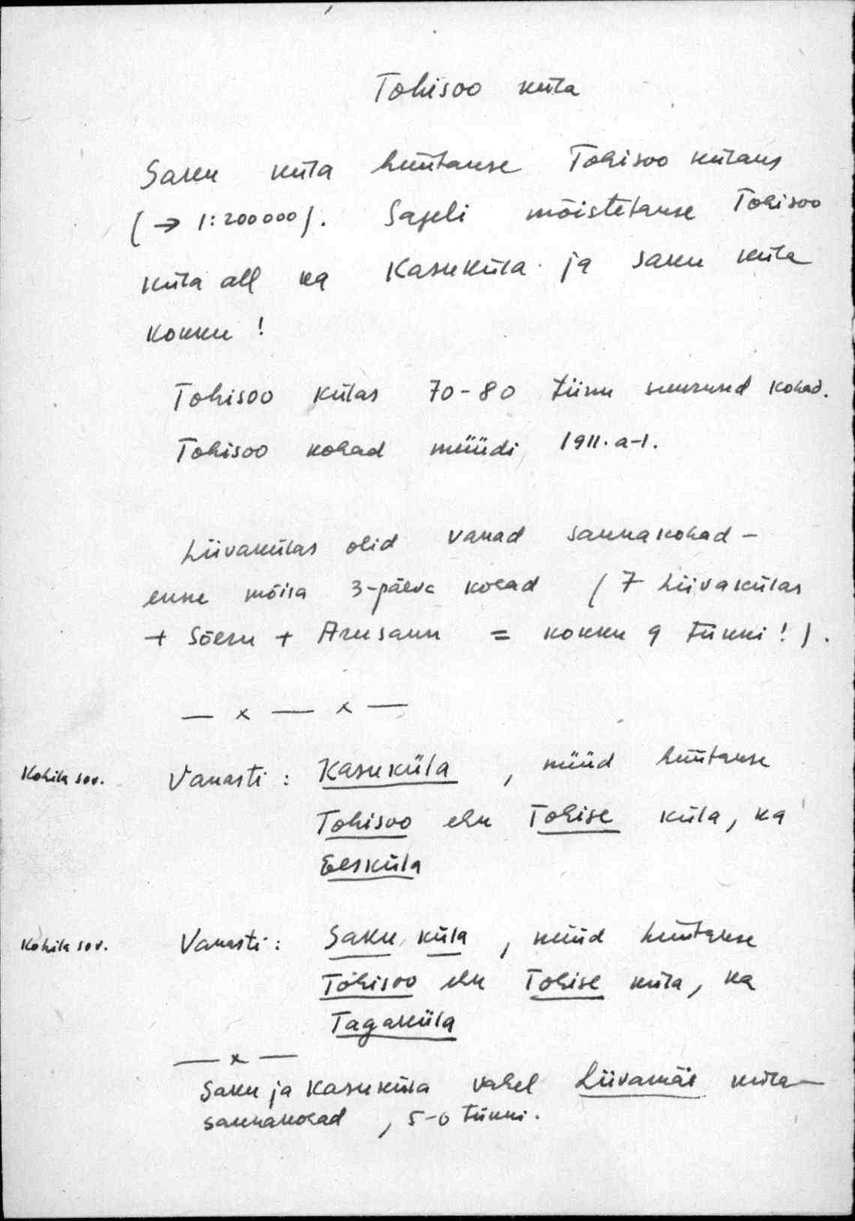 Tohisoo küla
Saku küla hüütakse Tohisoo külaks
(→ 1:200000). Sageli mõistetakse Tohisoo
küla all ka Kasuküla ja Saku küla
kokku!
Tohisoo külas 70-80 tiinu suurused kohad.
Tohisoo kohad müüdi 1911. a-l.
Liivakülas olid vanad saunakohad -
enne mõisa 3-päeva kohad (7 Liivakülas
+ Sõeru + Arusaun = kokku 9 tükki!).
— x — x —
Kohila sov. Vanasti: Kasuküla, nüüd hüütakse
Tohisoo ehk Tohise küla, ka
Eesküla
Kohila sov. Vanasti: Saku küla, nüüd hüütakse
Tohisoo ehk Tohise küla, ka
Tagaküla
— x —
Saku ja Kasuküla vahel Liivamäe küla —
saunakohad, 5-6 tükki.